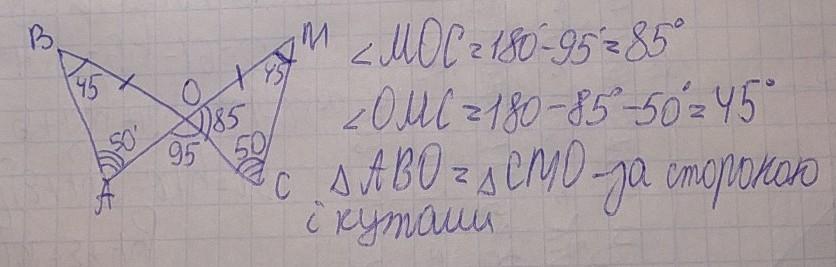 B
M
45
O
45
85
50°
95
50
A
C
∠MOC = 180° - 95° = 85°
∠OMC = 180 - 85° - 50° = 45°
△ABO = △CMO - за стороною
і кутами